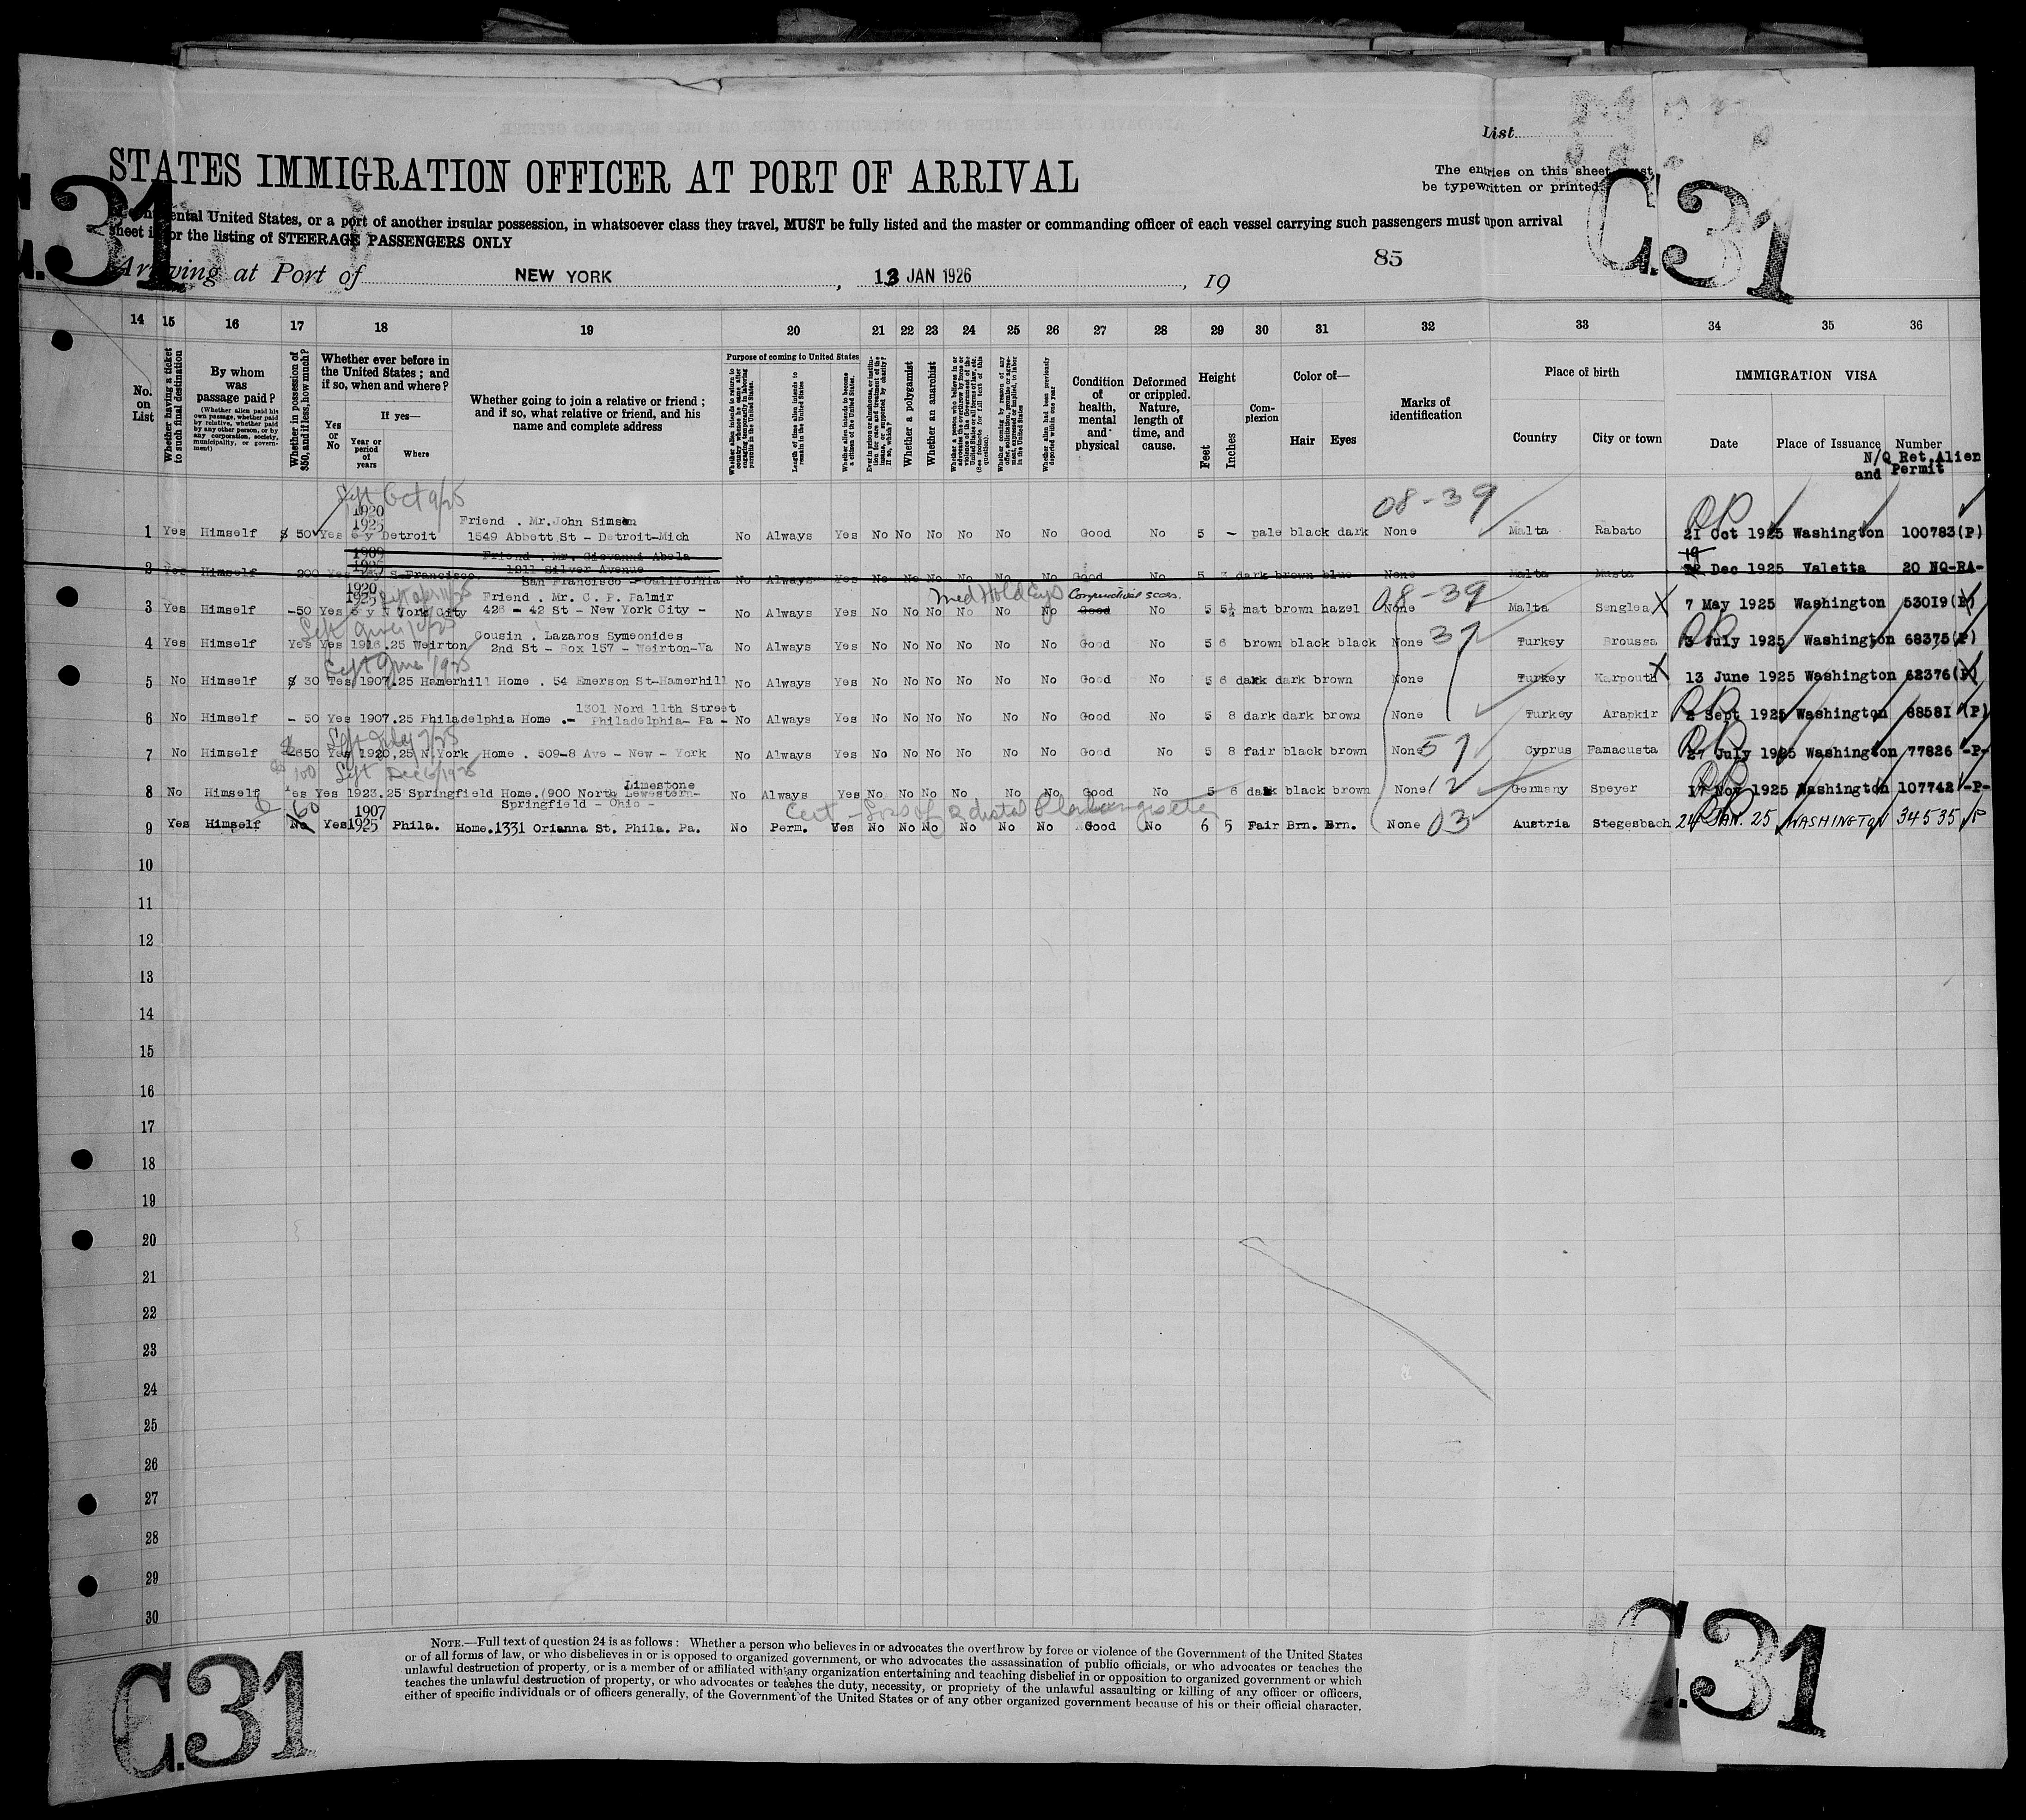 List
STATES IMMIGRATION OFFICER AT PORT OF ARRIVAL
The entries on this sheet must
be typewritten or printed.
C.31
C.31
ental United States, or a port of another insular possession, in whatsoever class they travel, MUST be fully listed and the master or commanding officer of each vessel carrying such passengers must upon arrival
sheet is for the listing of STEERAGE PASSENGERS ONLY
85
Arriving at Port of NEW YORK, 13 JAN 1926, 19
14 15 16 17 18 19 20 21 22 23 24 25 26 27 28 29 30 31 32 33 34 35 36
No. on List
Whether having a ticket to such final destination
By whom was passage paid?
(Whether alien paid his own passage, whether paid by relative, whether paid by any other person, or by any corporation, society, municipality, or government)
Whether in possession of $50, and if less, how much?
Whether ever before in the United States; and if so, when and where?
Yes or No
If yes—
Year or period of years
Where
Whether going to join a relative or friend; and if so, what relative or friend, and his name and complete address
Purpose of coming to United States
Whether alien intends to return to country whence he came after engaging temporarily in laboring pursuits in the United States.
Length of time alien intends to remain in the United States
Whether alien intends to become a citizen of the United States.
Ever in prison or almshouse, or institution for care and treatment of the insane, or supported by charity? If so, which?
Whether a polygamist
Whether an anarchist
Whether alien had been previously deported within one year
Condition of health, mental and physical
Deformed or crippled. Nature, length of time, and cause.
Height
Feet
Inches
Complexion
Color of—
Hair Eyes
Marks of identification
Place of birth
Country
City or town
IMMIGRATION VISA
Date
Place of Issuance
Number
N/Q Ret.Alien
and Permit
Left Oct 9/25
08-39
1920
1925
Friend . Mr.John Simson
1 Yes Himself $ 50 Yes 6 y Detroit 1549 Abbott St - Detroit-Mich No Always Yes No No No No No No Good No 5 - pale black dark None Malta Rabato 21 Oct 1925 Washington 100783(P)
1909
1925
Friend . Mr. Giovanni Abela
1811 Silver Avenue
2 Yes Himself 200 Yes S.Francisco San Francisco - California No Always Yes No No No No No No Good No 5 3 dark brown blue None Malta Dec 1925 Valetta 20 NQ-RA-
1920
1925
Med Hold Eyes Conjunctival scars.
08-39
Friend . Mr. C. P. Palmir
3 Yes Himself -50 Yes 6 y N York City 426 - 42 St - New York City - No Always Yes No No No No No No Good No 5 5½ mat brown hazel None Malta Senglea X 7 May 1925 Washington 53019(P)
Cousin . Lazaros Symeonides
4 Yes Himself Yes Yes 1916.25 Weirton 2nd St - Box 157 - Weirton-Va No Always Yes No No No No No No Good No 5 6 brown black black None 37 Turkey Broussa 3 July 1925 Washington 68375(P)
Left June 1925
5 No Himself $ 30 Yes 1907.25 Hamerhill Home . 54 Emerson St-Hamerhill No Always Yes No No No No No No Good No 5 6 dark dark brown None Turkey Karpouth X 13 June 1925 Washington 62376(P)
1301 Nord 11th Street
6 No Himself - 50 Yes 1907.25 Philadelphia Home .- Philadelphia- Pa - No Always Yes No No No No No No Good No 5 8 dark dark brown None Turkey Arapkir 2 Sept 1925 Washington 88581 (P)
7 No Himself 650 Yes 1920,25 N.York Home . 509-8 Ave - New - York No Always Yes No No No No No No Good No 5 8 fair black brown None 57 Cyprus Famacusta 27 July 1925 Washington 77826 -P-
100 Left Dec 6/1925
Limestone
8 No Himself Yes Yes 1923.25 Springfield Home.(900 North Lewestern- No Always Yes No No No No No No Good No 5 6 dark black brown None 12 Germany Speyer 17 Nov 1925 Washington 107742 -P-
Springfield - Ohio -
60
1907
9 Yes Himself No Yes 1925 Phila. Home.1331 Orianna St. Phila. Pa. No Perm. Yes No No No No No No Good No 6 5 Fair Brn. Brn. None 03 Austria Stegesbach 24 JAN. 25 WASHINGTON 34535 P
10
11
12
13
14
15
16
17
18
19
20
21
22
23
24
25
26
27
28
29
30
NOTE.—Full text of question 24 is as follows: Whether a person who believes in or advocates the overthrow by force or violence of the Government of the United States
or of all forms of law, or who disbelieves in or is opposed to organized government, or who advocates the assassination of public officials, or who advocates or teaches the
unlawful destruction of property, or is a member of or affiliated with any organization entertaining and teaching disbelief in or opposition to organized government or which
teaches the unlawful destruction of property, or who advocates or teaches the duty, necessity, or propriety of the unlawful assaulting or killing of any officer or officers,
either of specific individuals or of officers generally, of the Government of the United States or of any other organized government because of his or their official character.
C.31
C.31